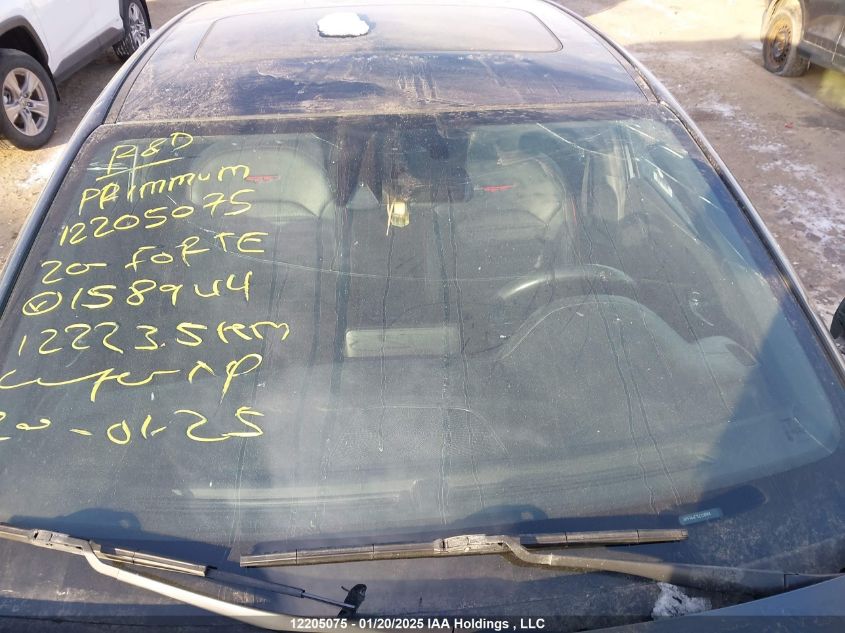 R&D
PRIMMUM
12205075
20- FORTE
158944
122235 KM
-01-25
12205075 - 01/20/2025 IAA Holdings , LLC